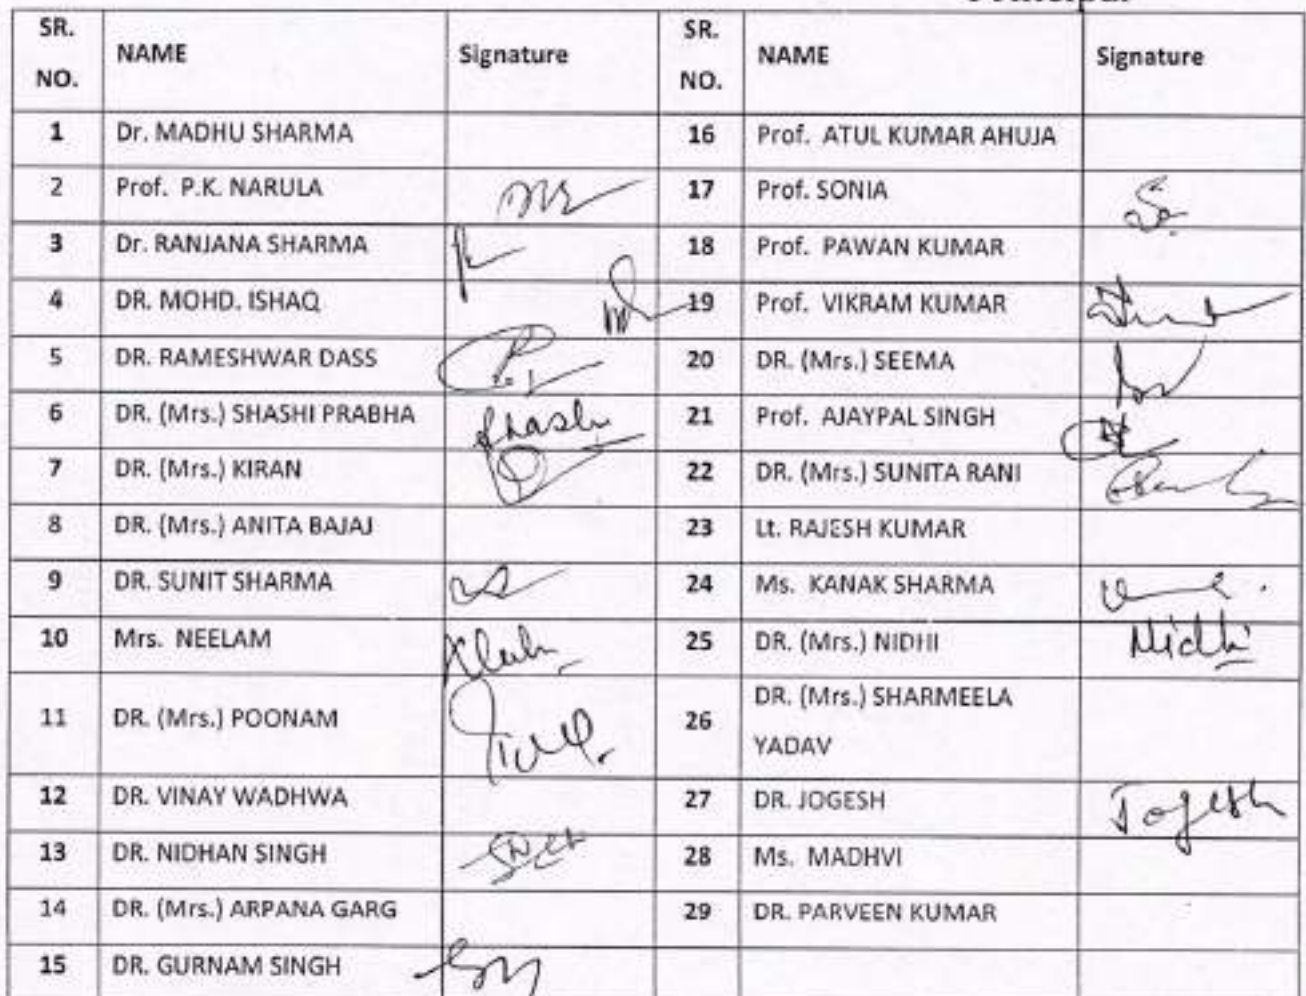 SR. NO. NAME Signature SR. NO. NAME Signature
1 Dr. MADHU SHARMA 16 Prof. ATUL KUMAR AHUJA
2 Prof. P.K. NARULA 17 Prof. SONIA
3 Dr. RANJANA SHARMA 18 Prof. PAWAN KUMAR
4 DR. MOHD. ISHAQ 19 Prof. VIKRAM KUMAR
5 DR. RAMESHWAR DASS 20 DR. (Mrs.) SEEMA
6 DR. (Mrs.) SHASHI PRABHA Shashi 21 Prof. AJAYPAL SINGH
7 DR. (Mrs.) KIRAN 22 DR. (Mrs.) SUNITA RANI
8 DR. (Mrs.) ANITA BAJAJ 23 Lt. RAJESH KUMAR
9 DR. SUNIT SHARMA 24 Ms. KANAK SHARMA
10 Mrs. NEELAM 25 DR. (Mrs.) NIDHI Nidhi
11 DR. (Mrs.) POONAM 26 DR. (Mrs.) SHARMEELA
YADAV
12 DR. VINAY WADHWA 27 DR. JOGESH Jogesh
13 DR. NIDHAN SINGH 28 Ms. MADHVI
14 DR. (Mrs.) ARPANA GARG 29 DR. PARVEEN KUMAR
15 DR. GURNAM SINGH